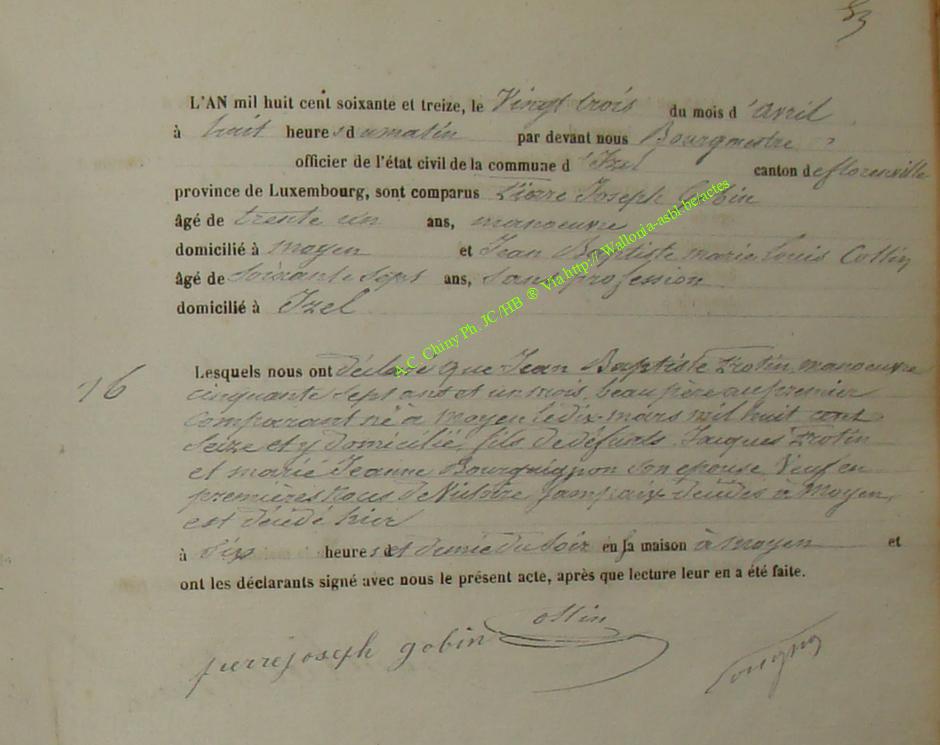 53
L'AN mil huit cent soixante et treize, le Vingt trois du mois d'avril
à huit heures du matin par devant nous Bourgmestre
officier de l'état civil de la commune d'Izel canton de florenville
province de Luxembourg, sont comparus Pierre Joseph Gobin
âgé de trente un ans, manoeuvre
domicilié à moyen et Jean Baptiste marie louis Collin
âgé de soixante sept ans, sans profession
domicilié à Izel
A.C. Chiny Ph. JC/HB ® Via http://Wallonia-asbl-be/actes
16 Lesquels nous ont déclaré que Jean Baptiste manoeuvre
cinquante sept ans et un mois, beau père au premier
comparant né à moyen le dix mars mil huit cent
seize et y domicilié fils de défunts Jacques
et marie Jeanne Bourguignon son epouse Veuf en
premières noces de décédée à Moyen,
est décédé hier
à six heures et demie du soir en sa maison à moyen et
ont les déclarants signé avec nous le présent acte, après que lecture leur en a été faite.
pierre joseph gobin Collin